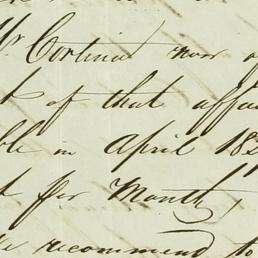 Mr Cortina now
of that affa
ble in April 182
t for Month,
recommend to